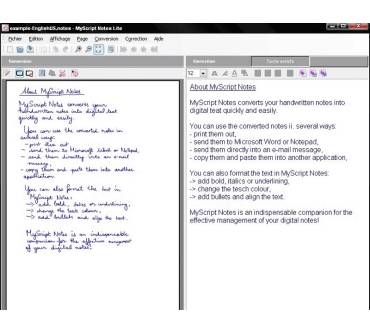 example-EnglishUS.notes - MyScript Notes Lite
Fichier Edition Affichage Page Conversion Correction Aide
Conversion
Conversion Texte extrait
12
About MyScript Notes
MyScript Notes converts your
handwritten notes into digital text
quickly and easily.
You can use the converted notes in
several ways:
- print them out
- send them to Microsoft Word or Notepad,
- send them directly into an e-mail
message,
- copy them and paste them into another
application
You can also format the text in
MyScript Notes:
-> add bold, italics or underlining,
-> change the text colour,
-> add bullets and align the text.
MyScript Notes is an indispensable
companion for the effective management
of your digital notes!
About MyScript Notes
MyScript Notes converts your handwritten notes into
digital teat quickly and easily.
You can use the converted notes ii. several ways:
- print them out,
- send them to Microsoft Word or Notepad,
- send them directly into an e-mail message,
- copy them and paste them into another application,
You can also format the text in MyScript Notes:
-> add bold, italics or underlining,
-> change the tesch colour,
-> add bullets and align the text.
MyScript Notes is an indispensable companion for the
effective management of your digital notes!